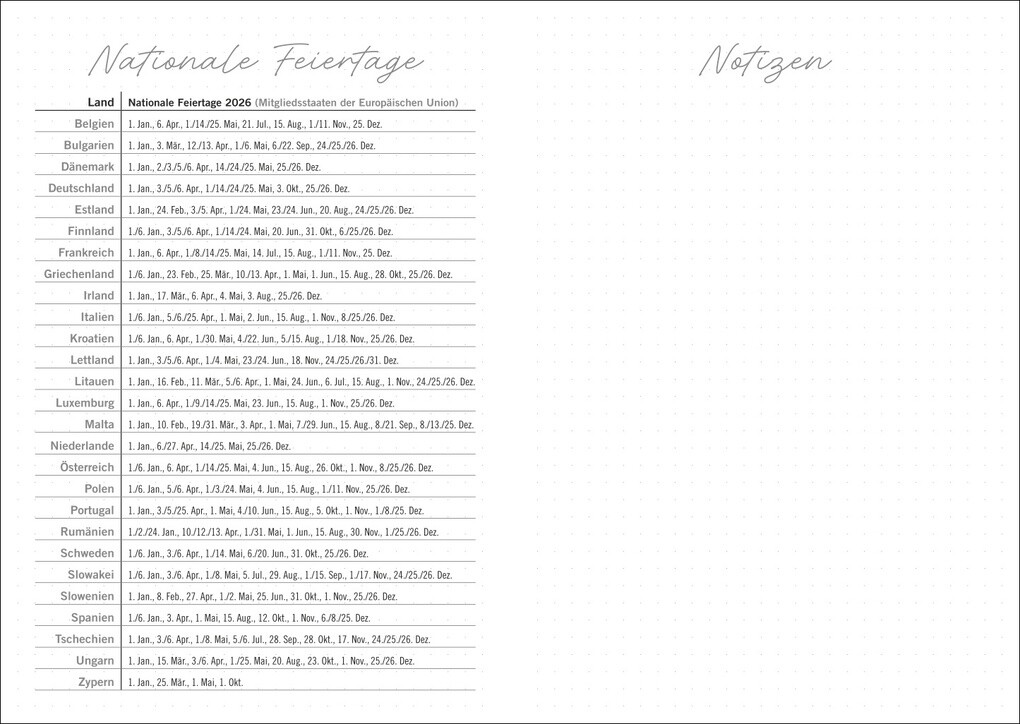 Nationale Feiertage
Land Nationale Feiertage 2026 (Mitgliedsstaaten der Europäischen Union)
Belgien 1. Jan., 6. Apr., 1./14./25. Mai, 21. Jul., 15. Aug., 1./11. Nov., 25. Dez.
Bulgarien 1. Jan., 3. Mär., 12./13. Apr., 1./6. Mai, 6./22. Sep., 24./25./26. Dez.
Dänemark 1. Jan., 2./3./5./6. Apr., 14./24./25. Mai, 25./26. Dez.
Deutschland 1. Jan., 3./5./6. Apr., 1./14./24./25. Mai, 3. Okt., 25./26. Dez.
Estland 1. Jan., 24. Feb., 3./5. Apr., 1./24. Mai, 23./24. Jun., 20. Aug., 24./25./26. Dez.
Finnland 1./6. Jan., 3./5./6. Apr., 1./14./24. Mai, 20. Jun., 31. Okt., 6./25./26. Dez.
Frankreich 1. Jan., 6. Apr., 1./8./14./25. Mai, 14. Jul., 15. Aug., 1./11. Nov., 25. Dez.
Griechenland 1./6. Jan., 23. Feb., 25. Mär., 10./13. Apr., 1. Mai, 1. Jun., 15. Aug., 28. Okt., 25./26. Dez.
Irland 1. Jan., 17. Mär., 6. Apr., 4. Mai, 3. Aug., 25./26. Dez.
Italien 1./6. Jan., 5./6./25. Apr., 1. Mai, 2. Jun., 15. Aug., 1. Nov., 8./25./26. Dez.
Kroatien 1./6. Jan., 6. Apr., 1./30. Mai, 4./22. Jun., 5./15. Aug., 1./18. Nov., 25./26. Dez.
Lettland 1. Jan., 3./5./6. Apr., 1./4. Mai, 23./24. Jun., 18. Nov., 24./25./26./31. Dez.
Litauen 1. Jan., 16. Feb., 11. Mär., 5./6. Apr., 1. Mai, 24. Jun., 6. Jul., 15. Aug., 1. Nov., 24./25./26. Dez.
Luxemburg 1. Jan., 6. Apr., 1./9./14./25. Mai, 23. Jun., 15. Aug., 1. Nov., 25./26. Dez.
Malta 1. Jan., 10. Feb., 19./31. Mär., 3. Apr., 1. Mai, 7./29. Jun., 15. Aug., 8./21. Sep., 8./13./25. Dez.
Niederlande 1. Jan., 6./27. Apr., 14./25. Mai, 25./26. Dez.
Österreich 1./6. Jan., 6. Apr., 1./14./25. Mai, 4. Jun., 15. Aug., 26. Okt., 1. Nov., 8./25./26. Dez.
Polen 1./6. Jan., 5./6. Apr., 1./3./24. Mai, 4. Jun., 15. Aug., 1./11. Nov., 25./26. Dez.
Portugal 1. Jan., 3./5./25. Apr., 1. Mai, 4./10. Jun., 15. Aug., 5. Okt., 1. Nov., 1./8./25. Dez.
Rumänien 1./2./24. Jan., 10./12./13. Apr., 1./31. Mai, 1. Jun., 15. Aug., 30. Nov., 1./25./26. Dez.
Schweden 1./6. Jan., 3./6. Apr., 1./14. Mai, 6./20. Jun., 31. Okt., 25./26. Dez.
Slowakei 1./6. Jan., 3./6. Apr., 1./8. Mai, 5. Jul., 29. Aug., 1./15. Sep., 1./17. Nov., 24./25./26. Dez.
Slowenien 1. Jan., 8. Feb., 27. Apr., 1./2. Mai, 25. Jun., 31. Okt., 1. Nov., 25./26. Dez.
Spanien 1./6. Jan., 3. Apr., 1. Mai, 15. Aug., 12. Okt., 1. Nov., 6./8./25. Dez.
Tschechien 1. Jan., 3./6. Apr., 1./8. Mai, 5./6. Jul., 28. Sep., 28. Okt., 17. Nov., 24./25./26. Dez.
Ungarn 1. Jan., 15. Mär., 3./6. Apr., 1./25. Mai, 20. Aug., 23. Okt., 1. Nov., 25./26. Dez.
Zypern 1. Jan., 25. Mär., 1. Mai, 1. Okt.
Notizen